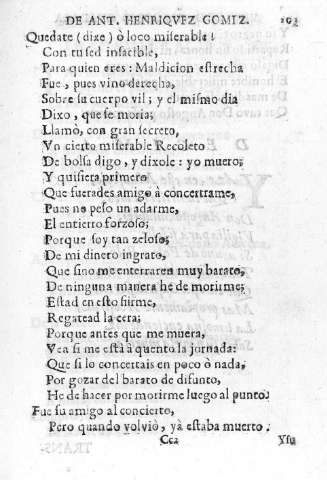 DE ANT. HENRIQVEZ GOMIZ. 203
Quedate (dixe) ò loco miserable!
Con tu sed insacible,
Para quien eres: Maldicion estrecha
Fue, pues vino derecha,
Sobre su cuerpo vil; y el mismo dia
Dixo, que se moria;
Llamò, con gran secreto,
Vn cierto miserable Recoleto
De bolsa digo, y dixole: yo muero;
Y quisiera primero
Que fuerades amigo à concertrame,
Pues no peso un adarme,
El entierro forzoso;
Porque soy tan zeloso;
De mi dinero ingrato,
Que sino me enterraren muy barato,
De ninguna manera he de morirme;
Estad en esto firme,
Regatead la cera;
Porque antes que me muera,
Vea si me està à quento la jornada:
Que si lo concertais en poco ò nada,
Por gozar del barato de difunto,
He de hacer por morirme luego al punto.
Fue su amigo al concierto,
Pero quando volviò, yà estaba muerto.
Cc2 Ysu